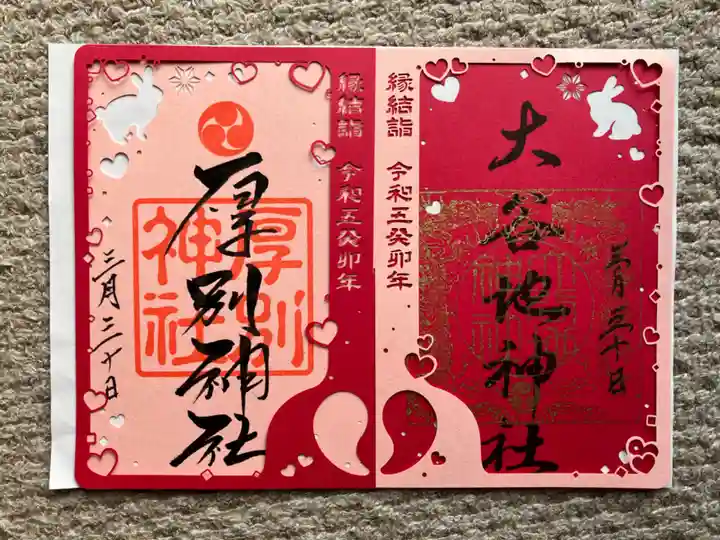 大谷地神社
三月三十日
縁結詣 令和五癸卯年
縁結詣 令和五癸卯年
厚別神社
厚別神社
三月三十日